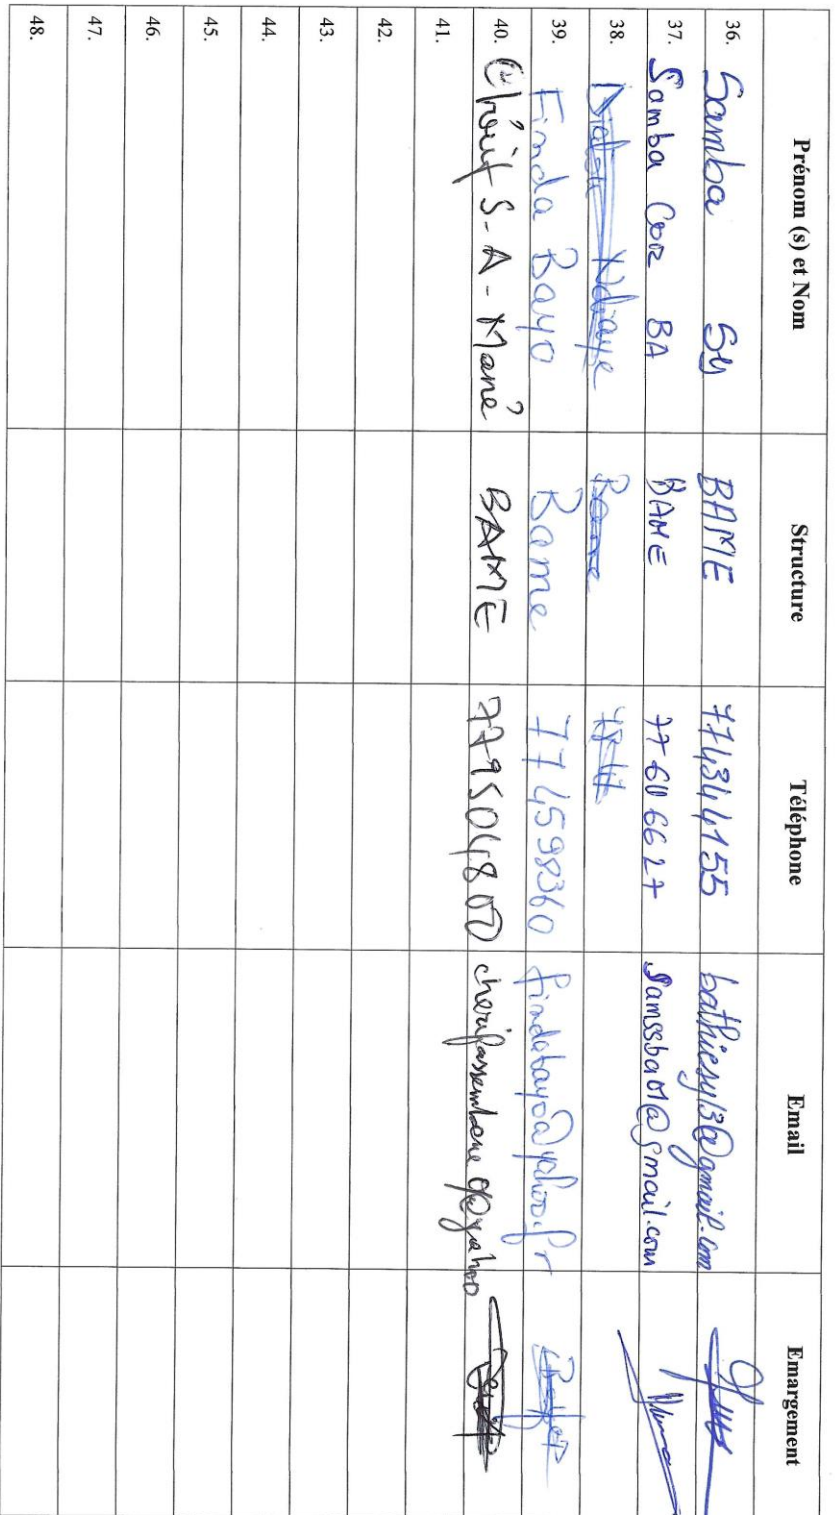 Prénom (s) et Nom Structure Téléphone Email Emargement
36. Samba Sy BAME 774344155 bathiesy13@gmail.com
37. Samba Coor BA BAME 77 606627 Samssba01@gmail.com
38. Ndiaye Bame
39. Finda Bayo Bame 774598360 findabayo@yahoo.fr
40. Chérif S-A-Mané BAME 779504800
41.
42.
43.
44.
45.
46.
47.
48.